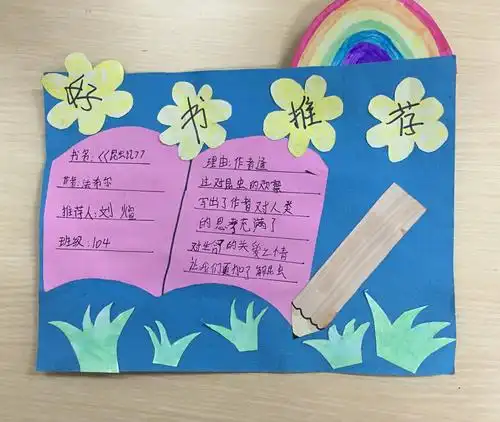 好书推荐
书名:《昆虫记》
作者:法布尔
推荐人:刘煊
班级:104
理由:作者通
过对昆虫的观察
写出了作者对人类
的思考充满了
对生命的关爱之情
让我们更加了解昆虫